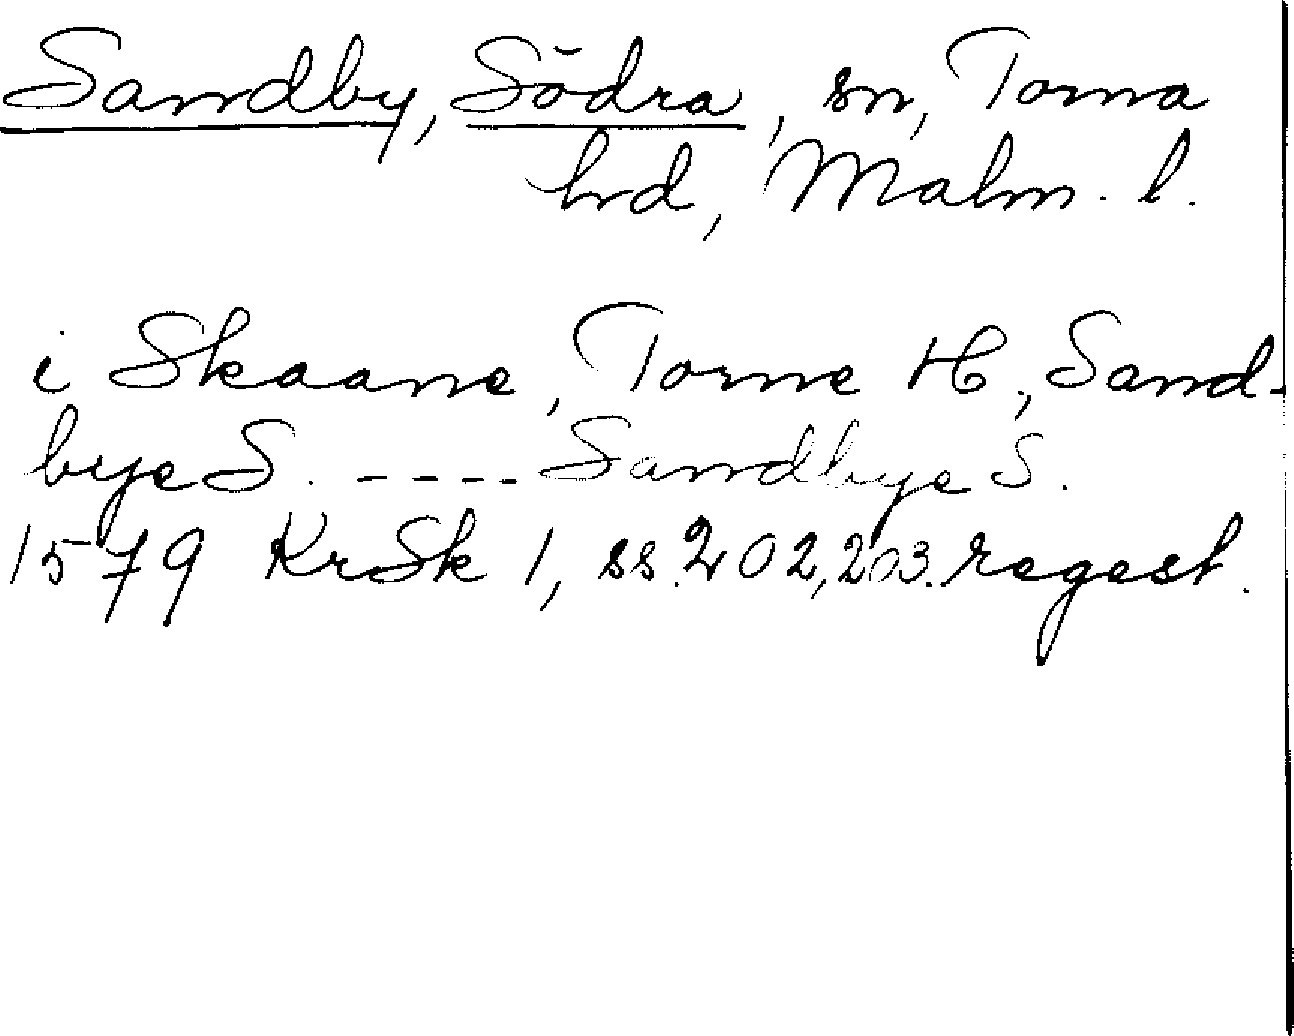 Sandby, Södra, sn, Torna
hrd, Malm. l.
i Skaane, Torne H., Sand-
bye S. ---- Sandbye S.
1579 KrSk 1, ss. 202, 203. regest.